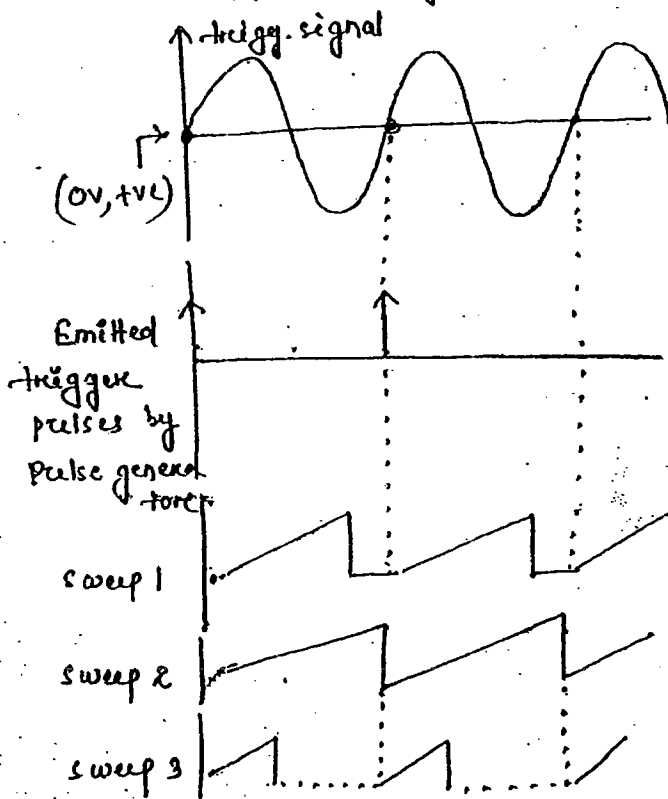 trigg. signal
(0V, +ve)
Emitted
trigger
pulses by
pulse genera
tor
sweep 1
sweep 2
sweep 3